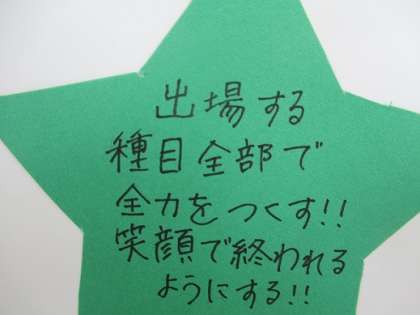 出場する
種目全部で
全力をつくす!!
笑顔で終われる
ようにする!!